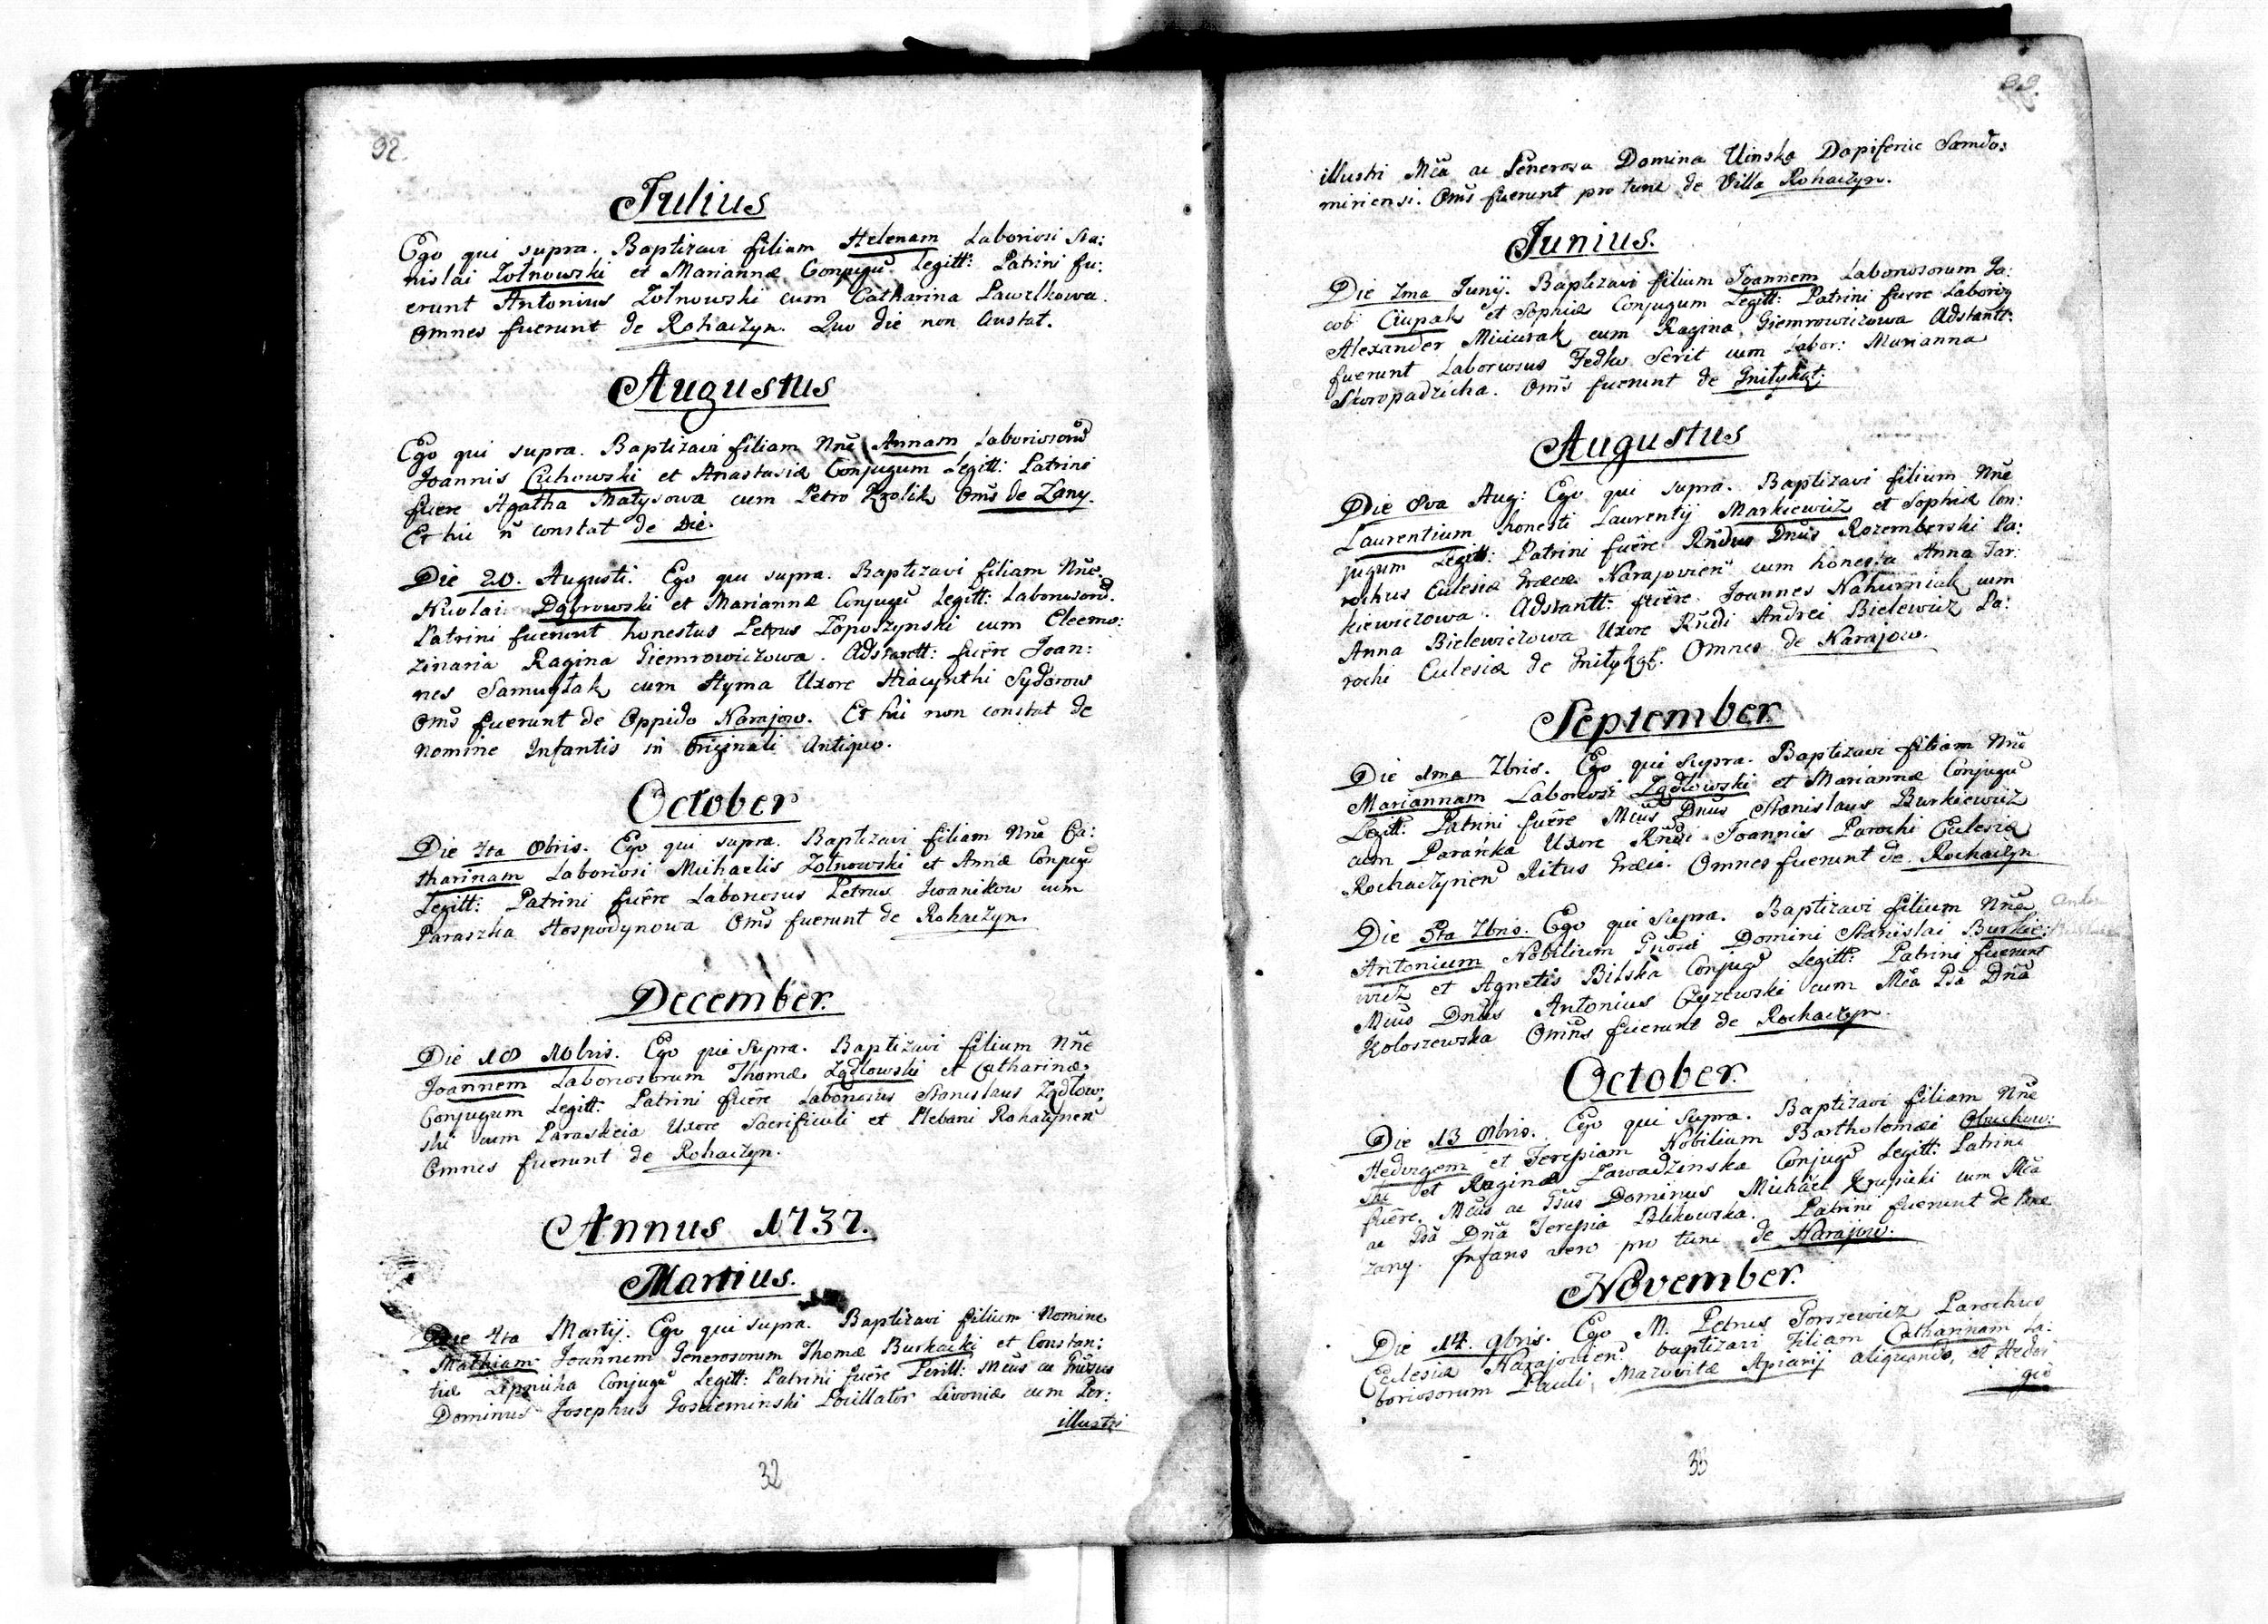 32.
Julius
Ego qui supra. Baptizavi filiam Helenam Laboriosi Sta:
nislai Zołnowski et Mariannæ Conjugũ Legitt: Patrini fu:
erunt Antonius Zołnowski cum Catharina Pawełkowa.
Omnes fuerunt de Rohaczyn. Quo die non Constat.
Augustus
Ego qui supra. Baptizavi filiam Nñe Annam Laboriosorũ
Joannis Cichowski et Anastasiæ Conjugum Legitt: Patrini
fuere Agatha Matysowa cum Petro Krolik Oms̃ de Zany.
Et hic ñ constat de Die.
Die 20. Augusti. Ego qui supra. Baptizavi filiam Nñe.
Nicolai Dąbrowski et Mariannæ Conjugũ Legitt: Laboriosorũ.
Patrini fuerunt honestus Petrus Zoposzynski cum Eleemo:
zinaria Ragina Giemrowiczowa. Adstantt: fuêre Joan:
nes Samuglak cum Hyma Uxore Hiacynthi Sydorow
Oms̃ fuerunt de Oppido Narajow. Et hic non constat de
nomine Infantis in Originali Antiquo.
October
Die 4ta 8bris. Ego qui supra. Baptizavi filiam Nñe Ca:
tharinam Laboriosi Michaelis Zołnowski et Annæ Conjugũ
Legitt: Patrini fuêre Laboriosus Petrus Iwanikow cum
Paraszka Hospodynowa Oms̃ fuerunt de Rohaczyn.
December.
Die 18 10bris. Ego qui Supra. Baptizavi filium Nñe
Joannem Laboriosorum Thomæ Zgdłowski et Catharinæ
Conjugum Legitt. Patrini fuêre Laboriosus Stanislaus Zgdłow:
ski cum Paraskeia Uxore Sacrificuli et Plebani Rohatynen̄
Omnes fuerunt de Rohaczyn.
Annus 1737.
Martius.
Die 4ta Martij. Ego qui supra. Baptizavi filium Nomine
Mathiam Joannem Generosorum Thomæ Burkacki et Constan:
tiæ Lipnicka Conjugũ Legitt: Patrini fuêre Perill: Mc̃us ac
Dominus Josephus Goscieminski Pocillator Livoniæ cum Per:
illustri
32
33.
illustri Mc̃a ac Generosa Domina Uinska Dapiferic Sando:
miriensi. Oms̃ fuerunt pro tunc de Villa Rohaczyn.
Junius.
Die 7ma Junÿ. Baptizavi filium Joannem Laboriosorum Ja:
cobi Ciupak et Sophiæ Conjugum Legitt: Patrini fuere
Alexander Miciurak cum Ragina Giemrowiczowa Adstantt:
fuerunt Laboriosus Fedko Serit cum Labor: Marianna
Skoropadzicha. Oms̃ fuerunt de
Augustus
Die 8va Aug: Ego qui supra. Baptizavi filium Nñe
Laurentium honesti Laurentij Markiewicz et Sophiæ Con:
jugum Legitt: Patrini fuêre Rñdus Dnũs Rozemberski Pa:
rochus Eclesiæ Græcæ Narajovien̄ cum honesta Anna Jar:
kiewiczowa. Adstantt: fuêre Joannes Nahurniak cum
Anna Bielewiczowa Uxore Rñdi Andrei Bielewicz Pa:
rochi Eclesiæ de Omnes de Narajow.
September
Die 1ma 7bris. Ego qui Supra. Baptizavi filiam Nñe
Mariannam Laboriosi Zgdłowski et Mariannæ Conjugũ
Legitt: Patrini fuêre Mc̃us Dnũs Stanislaus Burkiewicz
cum Paranka Uxore Rñdi Joannis Parochi Eclesiæ
Rochaczynien̄ Ritus Græci. Omnes fuerunt de Rochaczyn
Die 5ta 7bris. Ego qui Supra. Baptizavi filium Nñe
Antonium Nobilium Domini Stanislai Burkie:
wicz et Agnetis Bilska Conjugũ Legitt: Patrini fuerunt
Mc̃us Dnũs Antonius Czyzewski cum Mc̃a Dñã
Koloszewska Omñs fuerunt de Rochaczyn.
October.
Die 13 8bris. Ego qui Supra. Baptizavi filiam Nñe
Hedvigem et Teresiam Nobilium Bartholomæi Obuchow:
ski et Raginæ Zawadzinska Conjugũ Legitt: Patrini
fuêre. Mc̃us ac Dominus Michael Krupicki cum Mc̃a
ac Dñã Teresia Blikowska. Patrini fuerunt de Brze
zany. Infans vero pro tunc de Narajow.
November.
Die 14. 9bris. Ego M. Petrus Gorszewicz Parochus
Eclesiæ Narajovien̄ baptizavi Filiam Catharinam La:
boriosorum Pauli Mazovitæ Apiarij aliquando, et Hedvi
gis
33